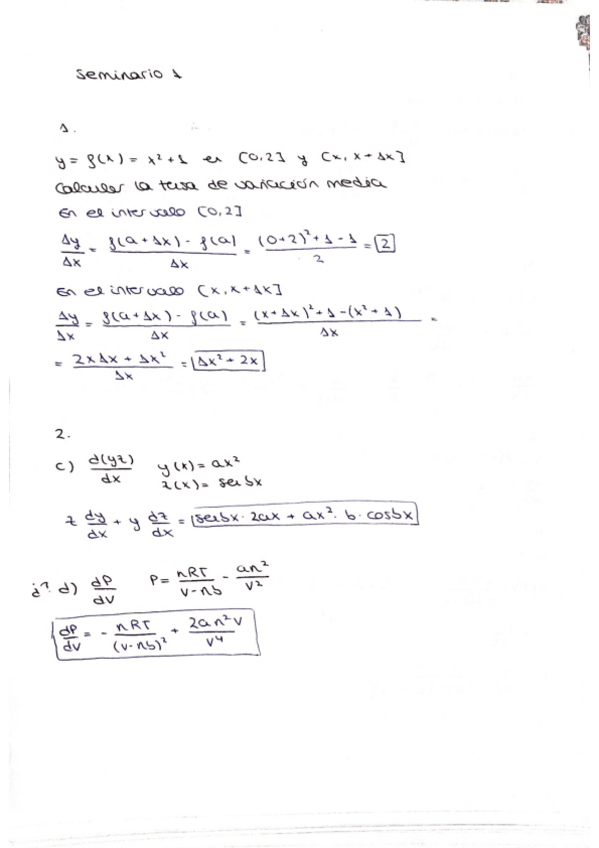 Seminario 1
1.
y = f(x) = x² + 1 en [0,2] y [x, x + Δx]
Calcular la tasa de variación media
En el intervalo [0,2]
Δy/Δx = (f(a + Δx) - f(a))/Δx = ((0+2)² + 1 - 1)/2 = 2
En el intervalo [x, x + Δx]
Δy/Δx = (f(a + Δx) - f(a))/Δx = ((x + Δx)² + 1 - (x² + 1))/Δx =
= (2xΔx + Δx²)/Δx = Δx² + 2x
2.
c) d(yz)/dx y(x) = ax²
z(x) = senbx
z dy/dx + y dz/dx = senbx · 2ax + ax² · b · cosbx
¿? d) dP/dV P = nRT/(V - nb) - an²/V²
dP/dV = - nRT/(V - nb)² + 2an²V/V⁴